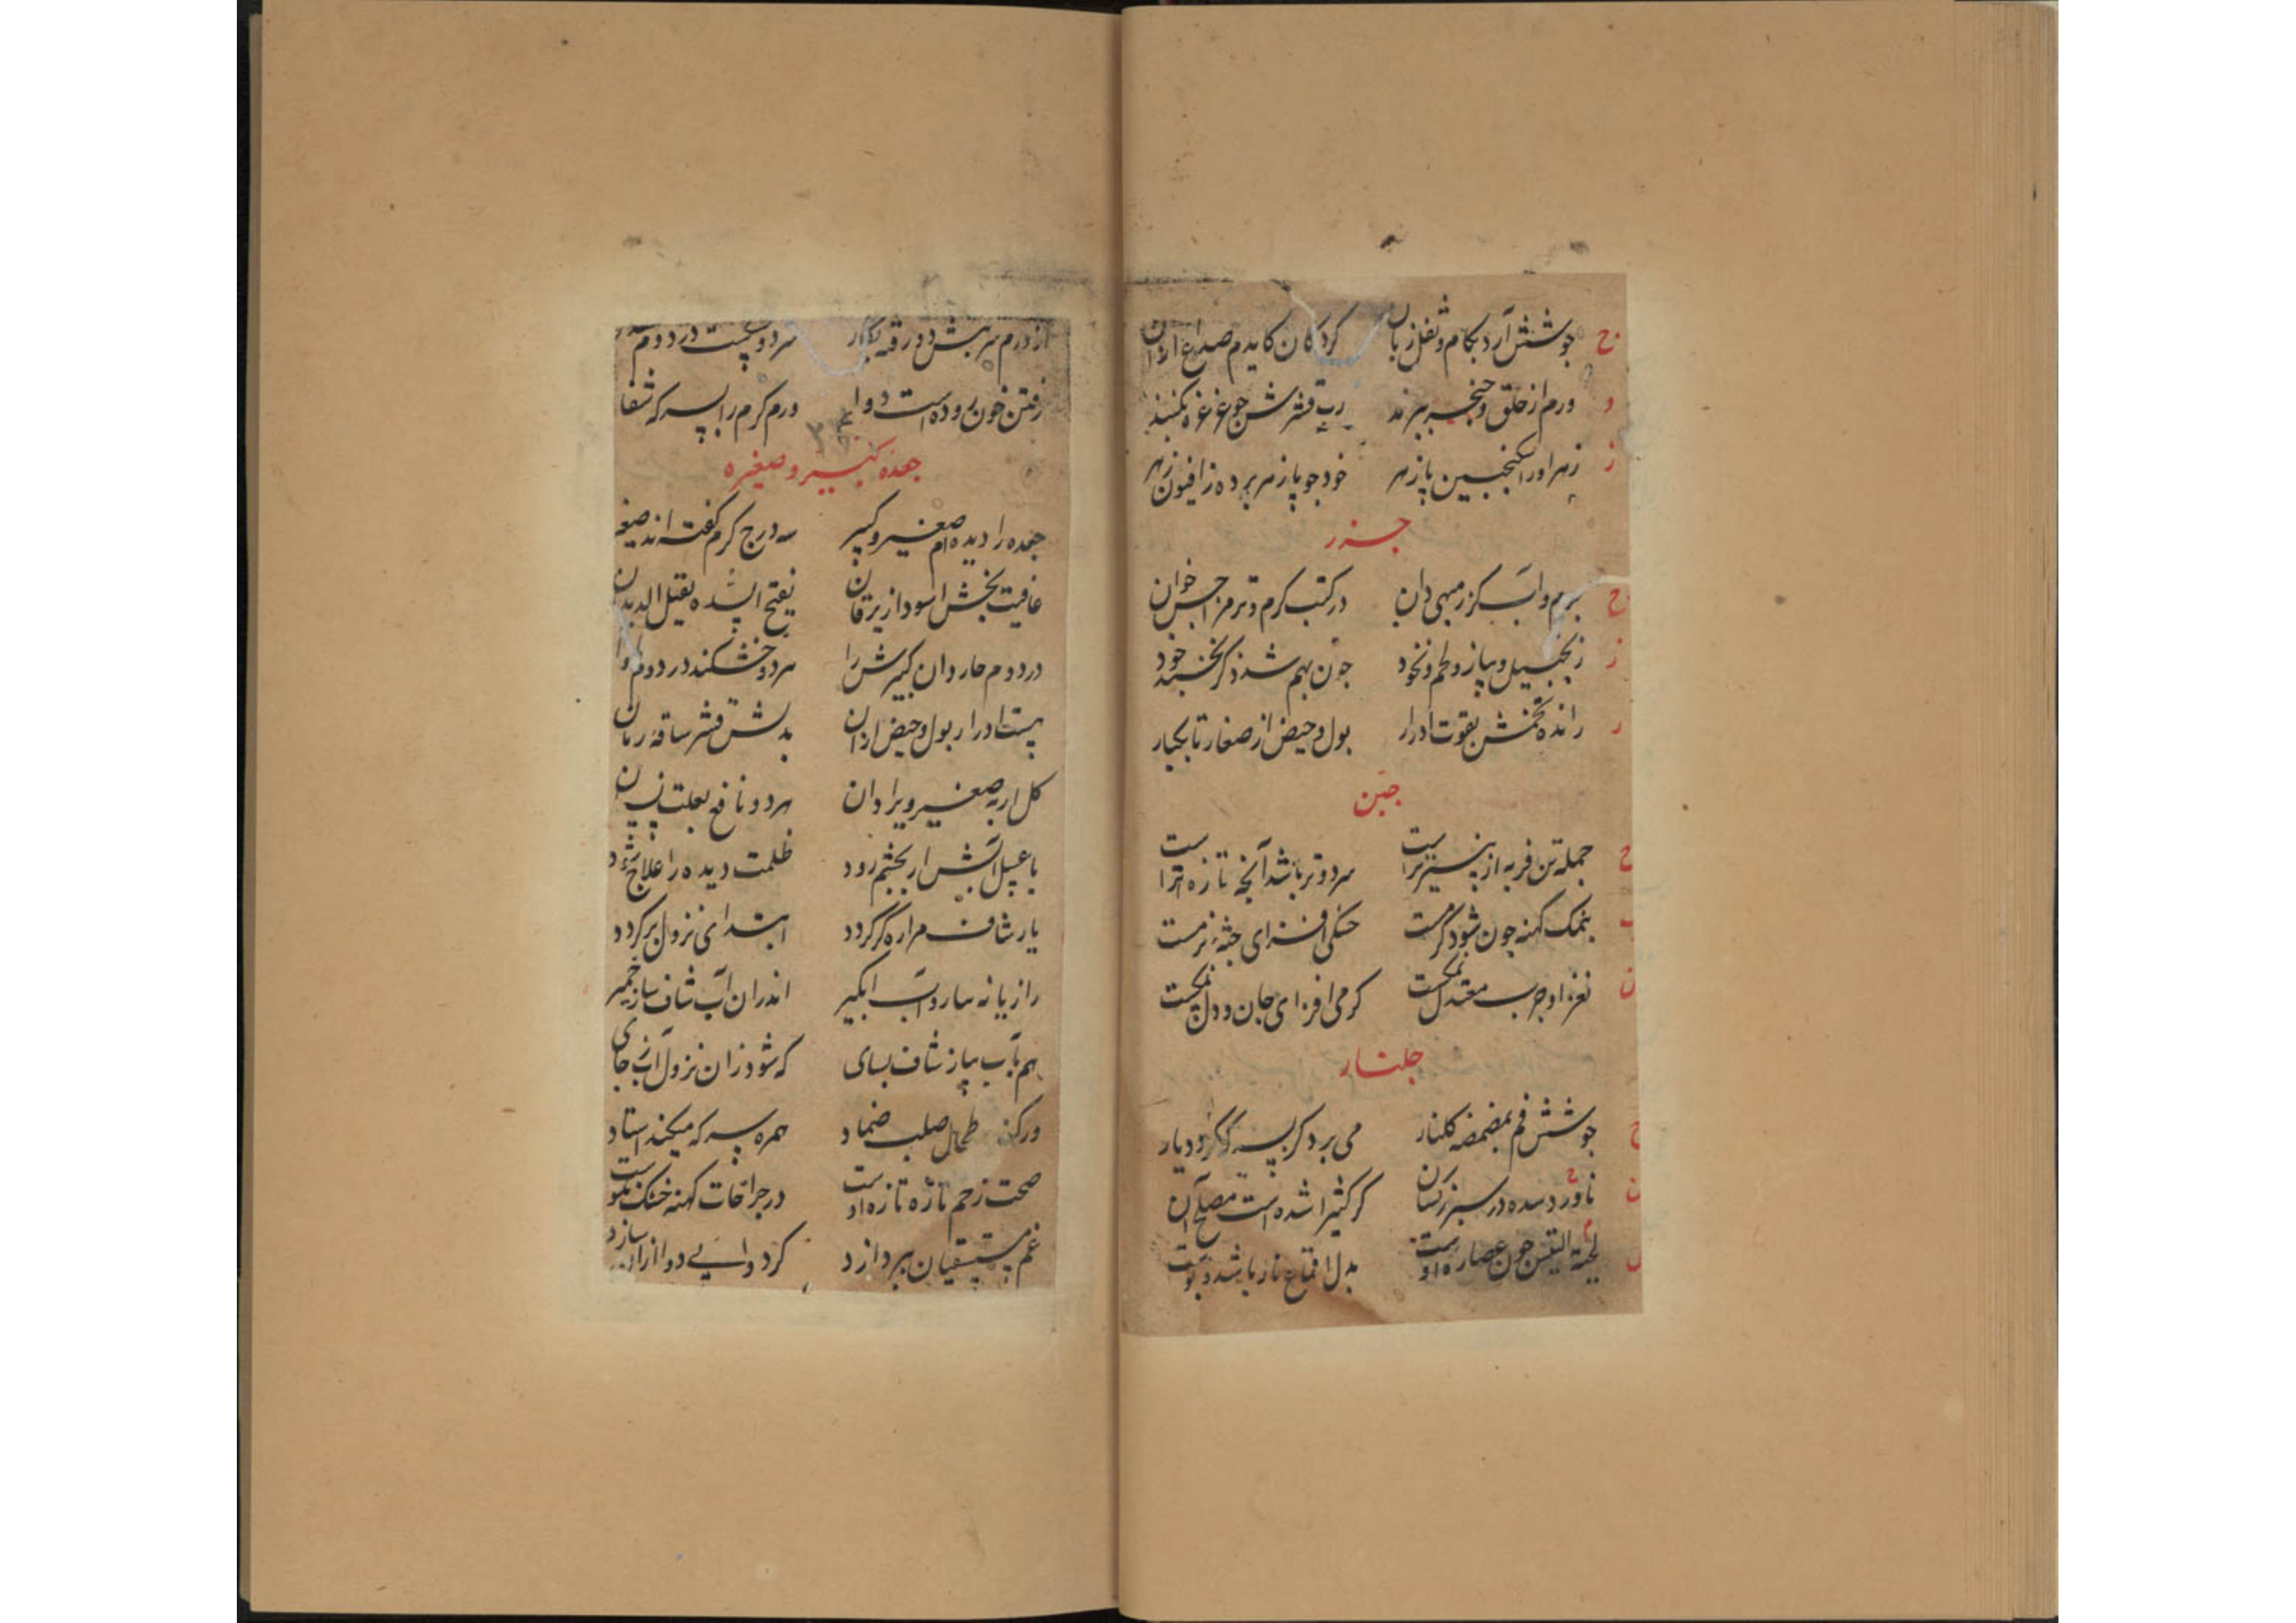 جوشش آرد بکام و ثقل زبان کردکان کایدم صداع ازان
ورم از حلق و حنجره ببرند رب قشرش جو غرغره بکنند
زهر او را سکنجبین پازهر خود جو پازهر برده ز افیون زهر
جزر
کزر می دان در کتب کرم و تر مزاجش خوان
زنجبیل و پیاز و لحم و نخود جون بهم شد ز کر نخسبد خود
رانده تخمش بقوت ادرار بول و حیض از صغار تا بکبار
جبن
جمله تن فربه از پنیر تراست سرد و تر باشد آنچه تازه تراست
بنمک کهنه چون شود کرمست خشکی افزای جثه نرمست
نغز او چرب معتدل نمکست کرمی افزای جان و دل
جلنار
جوشش فم بمضمضه کلنار می برد کر بسرکه کردد یار
کر کثیرا شده است مصلح آن
لحیة التیس جون عصاره اوست بدل اقماع نار باشد و پوست
از درم سر بسش دو رقه بکار سرد و خشکست در دوم
رفتن خون روده راست دوا ورم کرم را بسرکه شفا
جعده کبیر و صغیره
جعده را دیده ام صغیر و کبیر سه درج کرم گفته اند صغیر
عافیت بخش اسود از یرقان یفتح السده یقتل الدیدان
در دوم حار دان کبیرش را سرد و خشکند در دوم
هست ادرار بول و حیض ازان بدلش قشر ساقه رمان
کل اربه صغیر ویرا دان سرد و نافع بعلت نسیان
با عسل آبش ار بچشم رود ظلمت دیده را علاج شود
یار شاف مراره کر کردد ابتدای نزول بر کردد
رازیانه بیار و آب بکیر اندران آب شاف ساز خمیر
هم بآب پیاز شاف بسای که شود زان نزول آب ز جای
ور کنی طحال صلب ضماد همره سرکه میکند استاد
صحت زخم تازه تازه اوست در جراحات کهنه خشک نکوست
غم مستسقیان بپردازد کرد وایی دوا ازان سازد